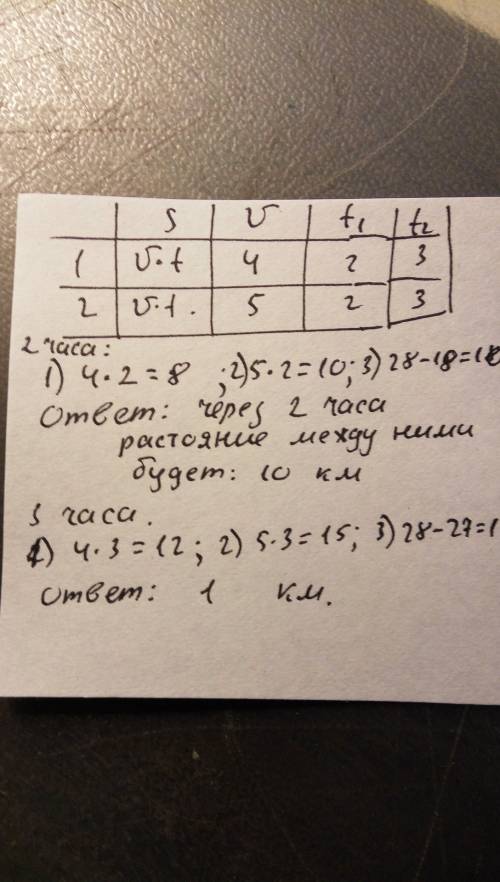 S v t₁ t₂
1 v·t 4 2 3
2 v·t. 5 2 3
2 часа:
1) 4·2=8 ;2)5·2=10;3)28-18=10
Ответ: через 2 часа
растояние между ними
будет: 10 км
3 часа.
1) 4·3=12; 2) 5·3=15; 3)28-27=1
Ответ: 1 км.